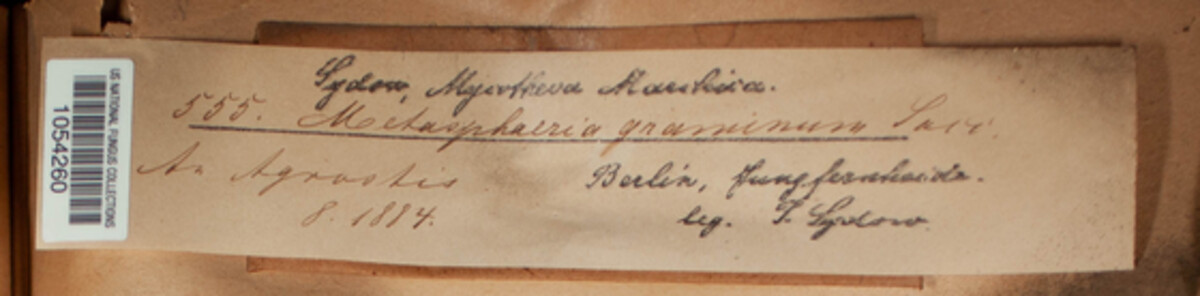 US NATIONAL FUNGUS COLLECTIONS
1054260
Sydow, Mycotheca Marchica.
555. Metasphaeria graminum Sacc.
An Agrostis
Berlin, Jungfernheide.
8. 1884.
leg. P. Sydow